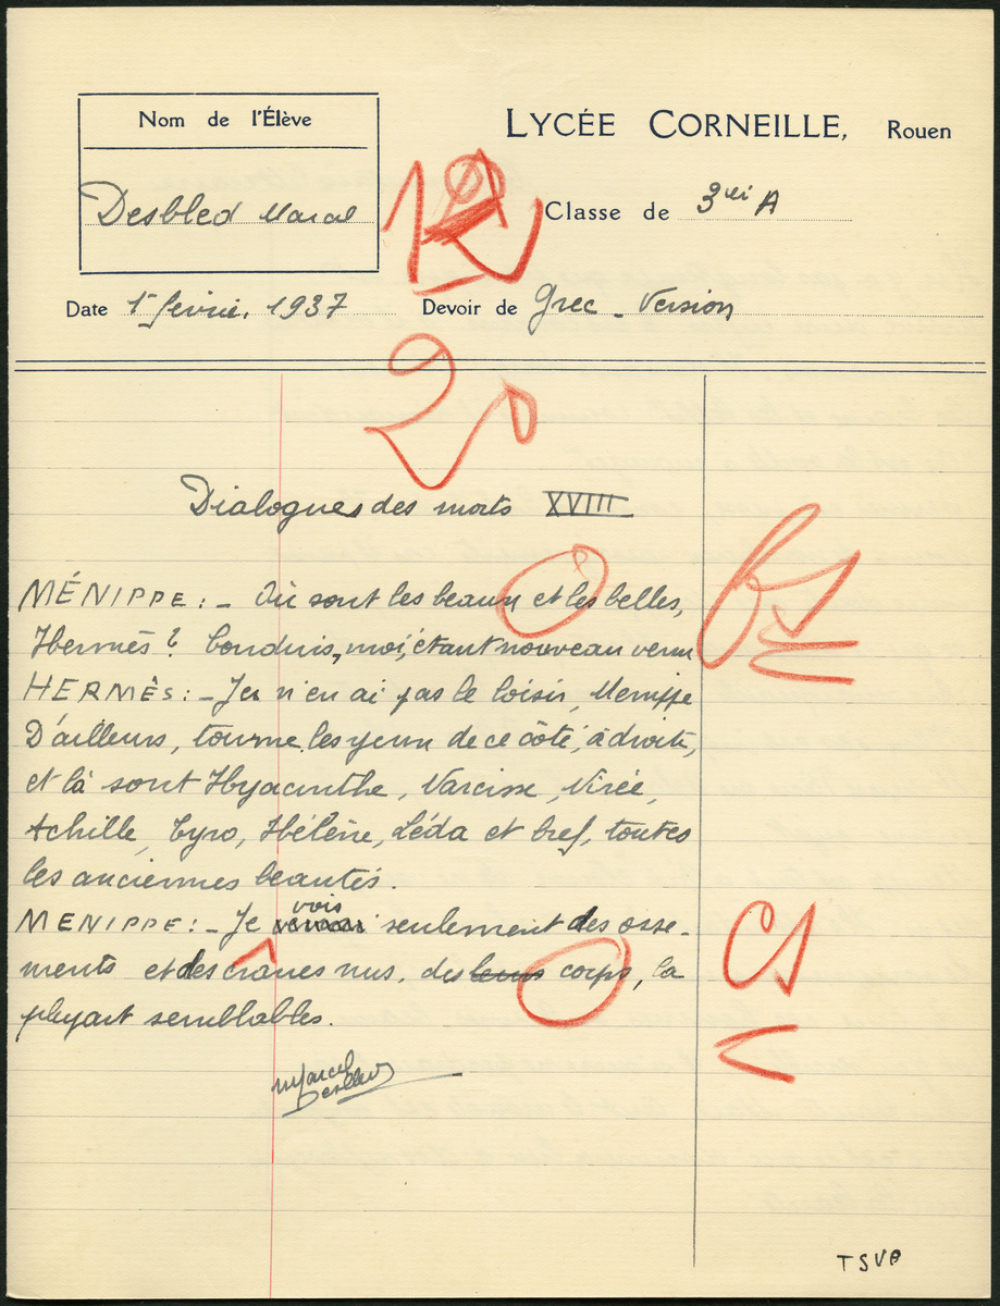 Nom de l'Élève
LYCÉE CORNEILLE, Rouen
Desbled Marcel
Classe de 3 A
Date 1 février 1937 Devoir de Grec - Version
20
Dialogues des morts XVIII
MÉNIPPE : - Où sont les beaux et les belles,
Hermès ? Conduis-moi, étant nouveau venu
HERMÈS : - Je n'en ai pas le loisir, Menippe
D'ailleurs, tourne les yeux de ce côté, à droite,
et là sont Hyacinthe, Narcisse, Nirée,
Achille, Tyro, Hélène, Léda et bref, toutes
les anciennes beautés.
MENIPPE : - Je vois seulement des osse-
ments et des cranes nus, des corps, la
plupart semblables.
Marcel
Desbled
TSVP